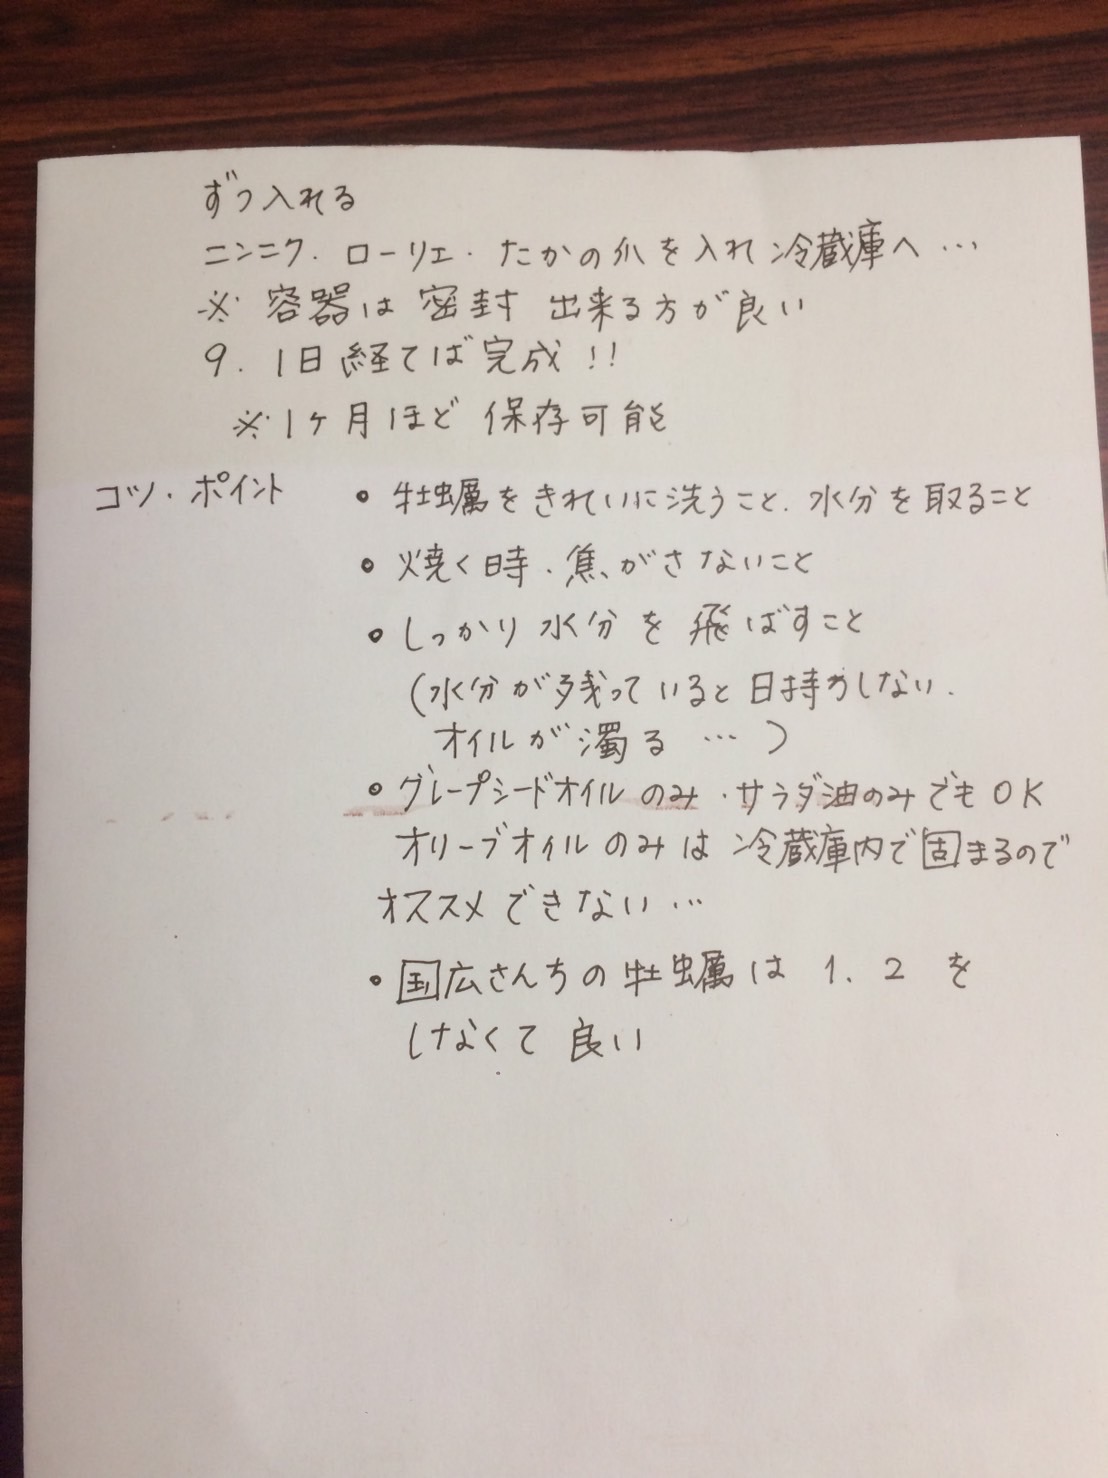 ずつ入れる
ニンニク. ローリエ. たかの爪を入れ 冷蔵庫へ …
※ 容器は 密封 出来る方が良い
9. 1日経てば完成!!
※1ヶ月ほど 保存可能
コツ・ポイント ・牡蠣をきれいに洗うこと. 水分を取ること
・焼く時. 焦がさないこと
・しっかり 水分を 飛ばすこと
(水分が残っていると 日持ちしない.
オイルが濁る … )
・グレープシードオイルのみ・サラダ油のみでもOK
オリーブオイルのみは 冷蔵庫内で固まるので
オススメできない…
・国広さんちの牡蠣は 1. 2 を
しなくて 良い